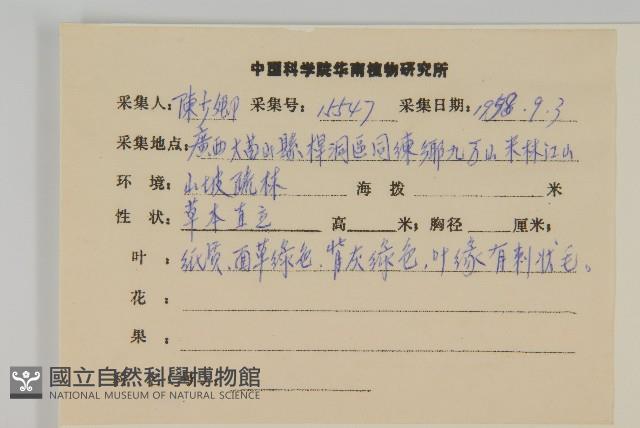 中国科学院华南植物研究所
采集人: 陳少卿 采集号: 15547 采集日期: 1958.9.3
采集地点: 廣西大苗山縣桿洞區同練鄉九万山木林江山
环 境: 山坡疏林 海 拨 米
性 状: 草本直立 高 米; 胸径 厘米;
叶 : 纸质、面草綠色、背灰綠色,叶缘有刺状毛。
花 :
果 :
國立自然科學博物館
NATIONAL MUSEUM OF NATURAL SCIENCE